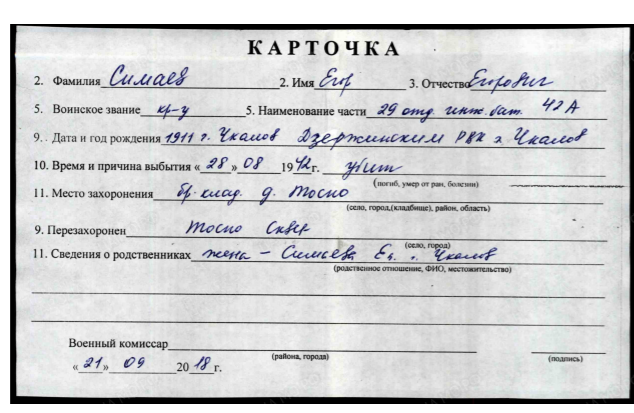 КАРТОЧКА
2. Фамилия Симаев 2. Имя Егор 3. Отчество Егорович
5. Воинское звание кр-ц 5. Наименование части 29 отд. инж. бат. 42 А
9. . Дата и год рождения 1911 г. Чкалов Дзержинским РВК г. Чкалов
10. Время и причина выбытия « 28 » 08 1942 г. убит
(погиб, умер от ран, болезни)
11. Место захоронения бр. клад. д. Тосно
(село, город,(кладбище), район, область)
9. Перезахоронен Тосно Сквер
(село, город)
11. Сведения о родственниках жена – Симаева Ек. г. Чкалов
(родственное отношение, ФИО, местожительство)
Военный комиссар
(района, города) (подпись)
« 21 » 09 2018 г.